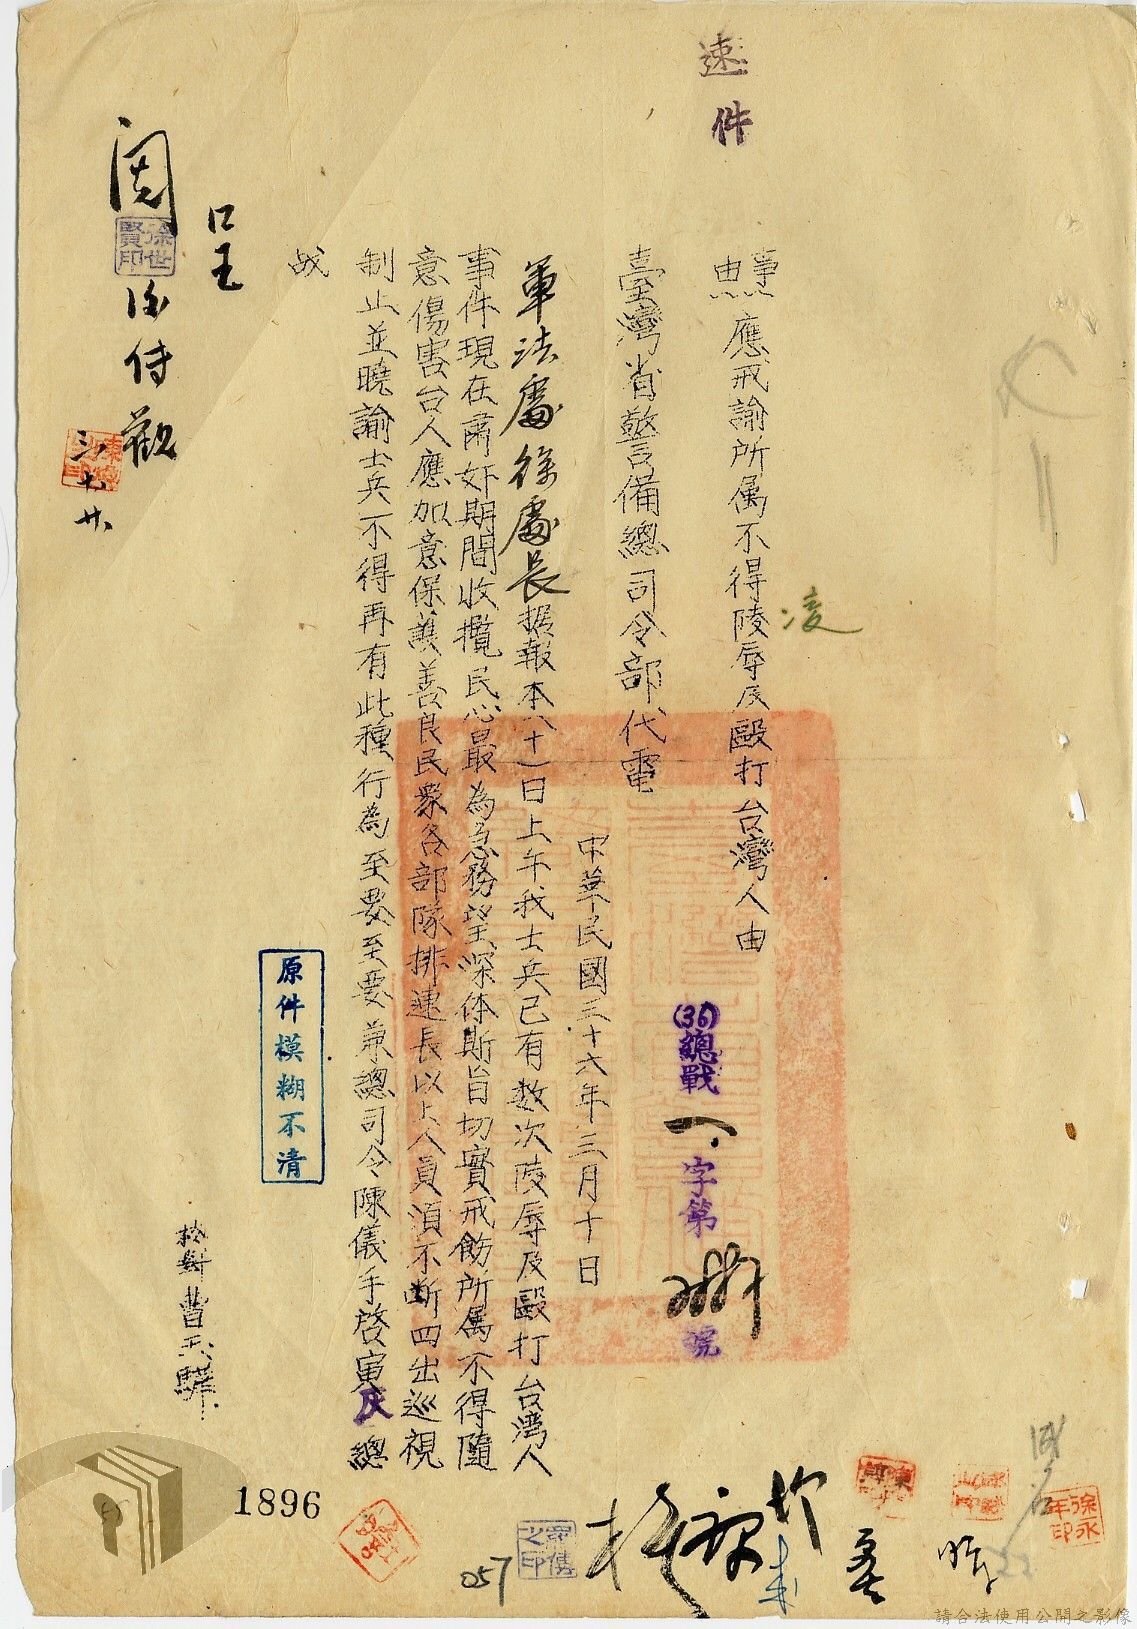 速件
事由
應戒諭所属不得陵辱及毆打台灣人由
凌
臺灣省警備總司令部代電
(36)總戰一字第
號
中華民國三十六年三月十日
軍法處徐處長据報本(十)日上午我士兵已有数次陵辱及毆打台灣人
事件現在肅奸期間收攬民心最為急務望深体斯旨切實戒飭所属不得隨
意傷害台人應加意保護善良民衆各部隊排連長以上人員湏不断四出巡視
制止並曉諭士兵不得再有此種行為至要至要兼總司令陳儀手啓寅灰總
战
呈
閱
徐世賢印
原件模糊不清
校對曹天
1896
057
徐永年印
請合法使用公開之影像